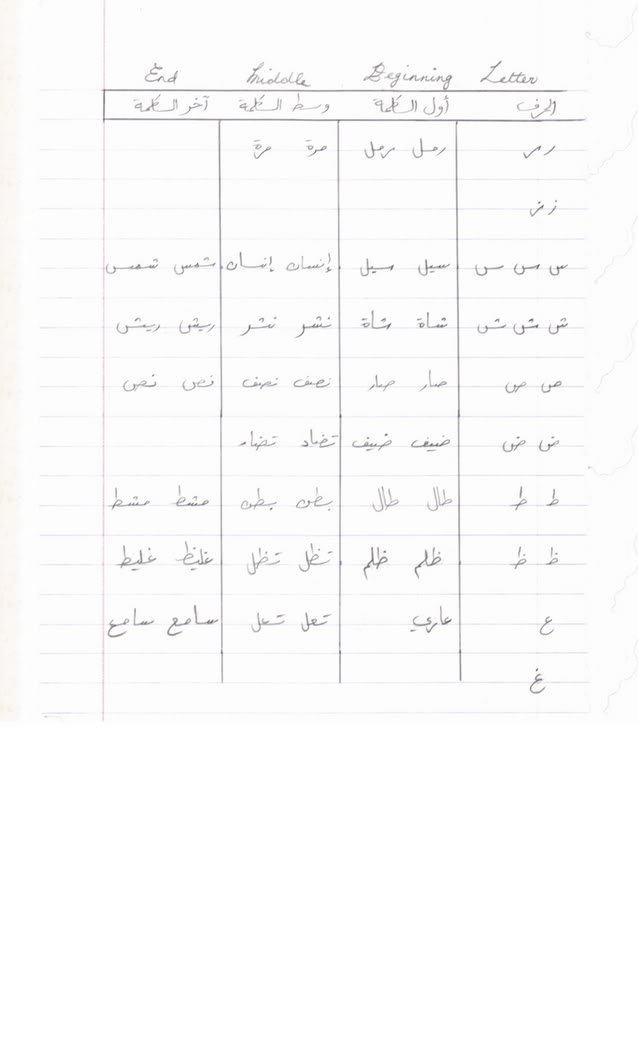 Letter Beginning Middle End
الحرف أول الكلمة وسط الكلمة آخر الكلمة
ر ر رمل رمل مرة مرة
ز ز
س س س سيل سيل إنسان إنسان شمس شمس
ش ش ش شاة شاة نشر نشر ريش ريش
ص ص صار صار نصف نصف نص نص
ض ض ضيف ضيف تضاد تضاد
ط ط طال طال بطن بطن مشط مشط
ظ ظ ظلم ظلم تظل تظل غليظ غليظ
ع عاري تعل تعل سامع سامع
غ